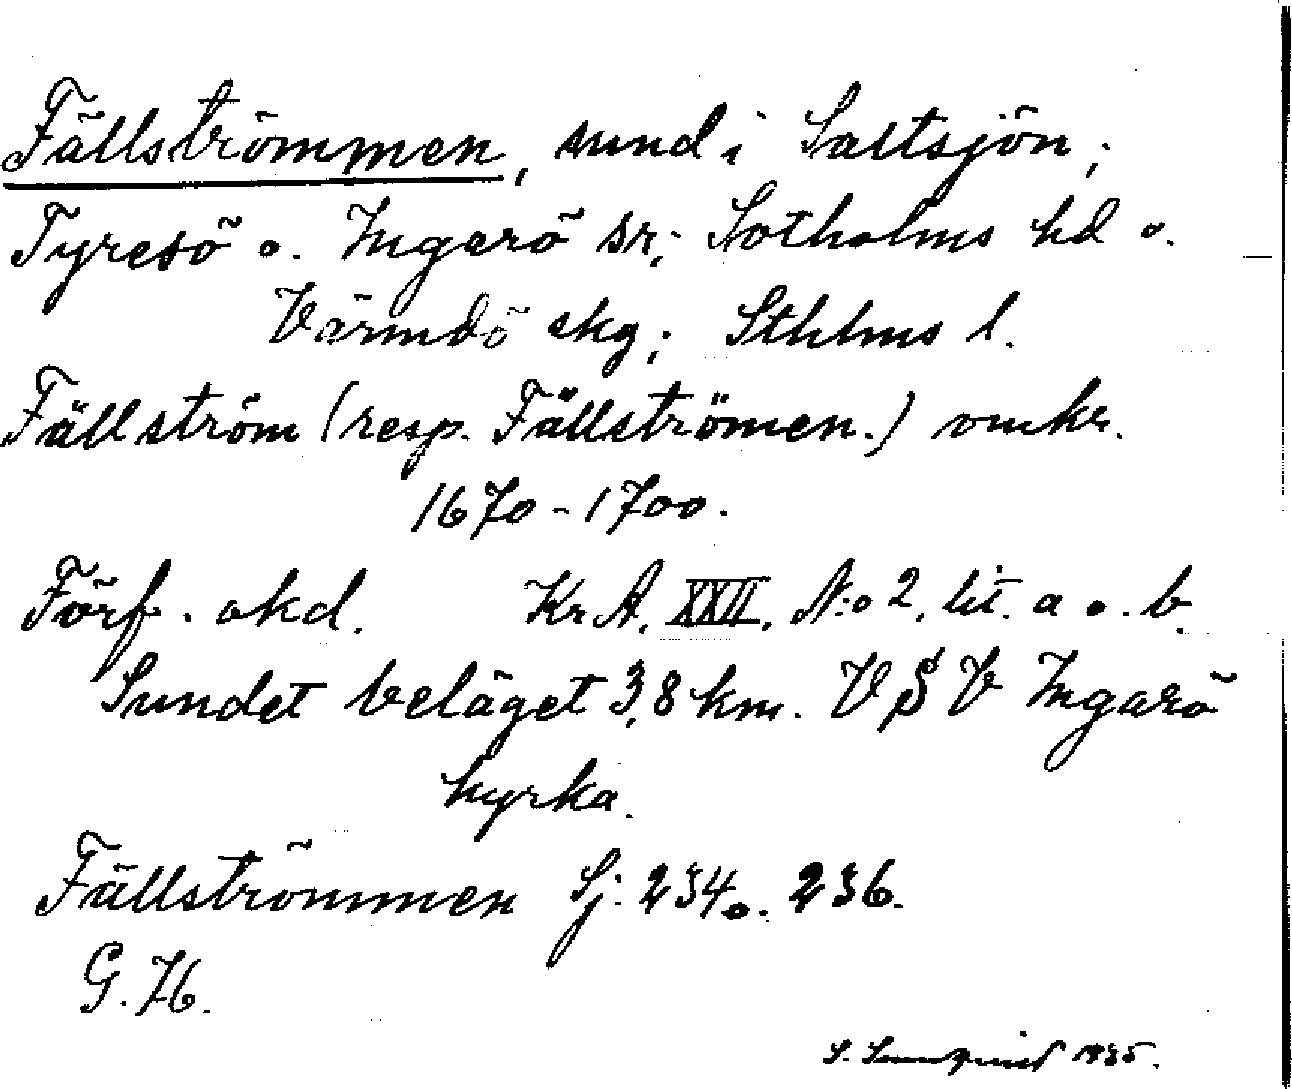 Fällströmmen, sund i Saltsjön;
Tyresö o. Ingarö snr; Sotholms hd o.
Värmdö skg; Sthlms l.
Fällström (resp. Fällströmen.) omkr.
1670-1700.
Förf. okd. Kr A. XXII. N:o 2. lit. a o. b.
Sundet beläget 3,8 km. V S V Ingarö
kyrka.
Fällströmmen Sj: 234 o. 236.
G. H.
S. 1935.